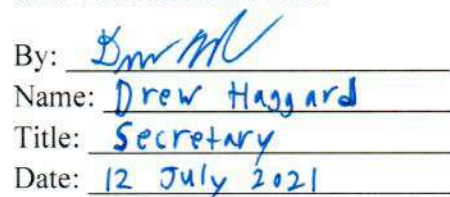 By:
Name: Drew Haggard
Title: Secretary
Date: 12 July 2021